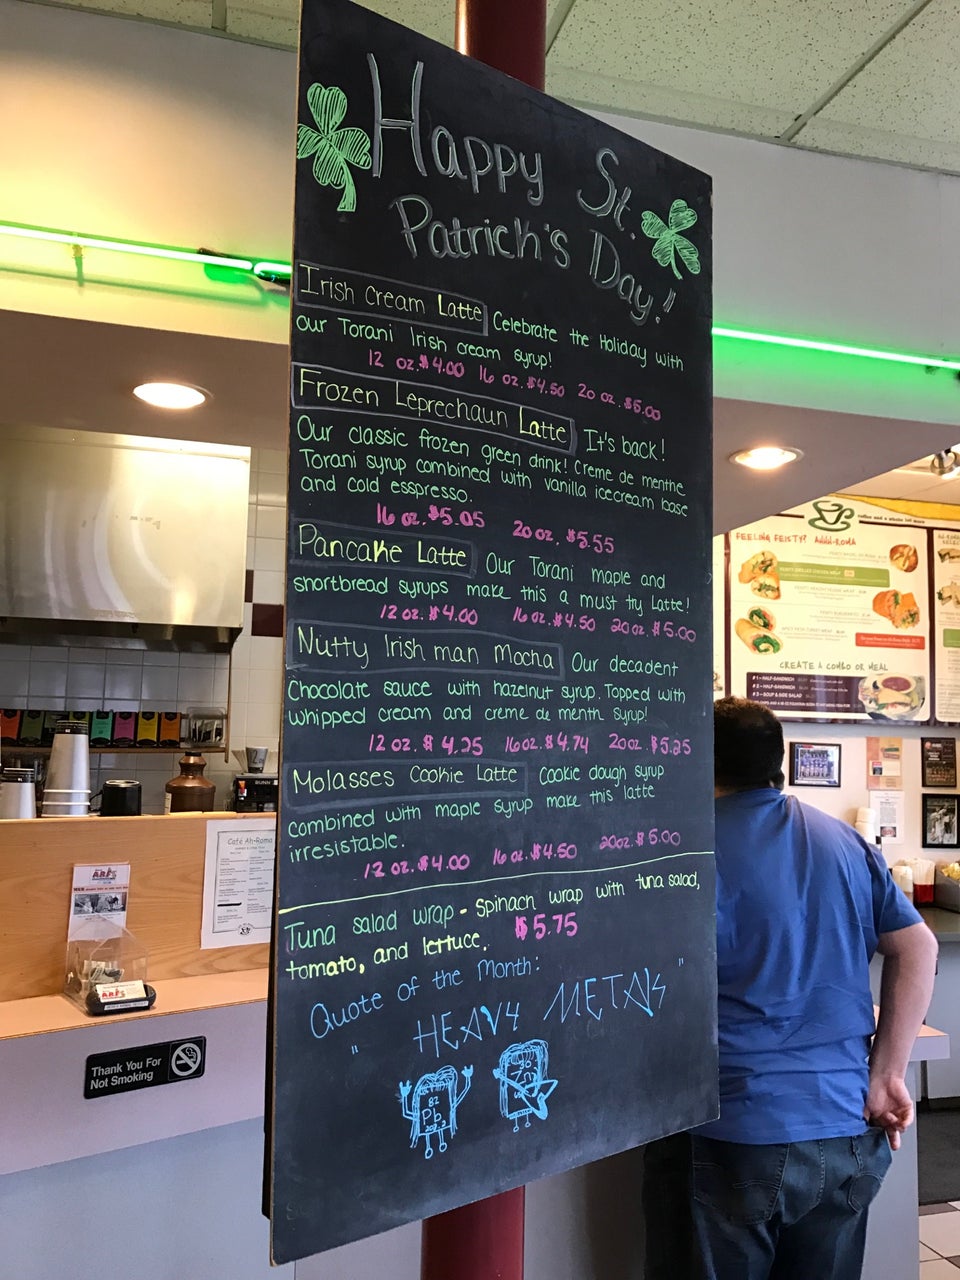 Happy St.
Patrick's Day!
Irish Cream Latte Celebrate the Holiday with
our Torani Irish cream syrup!
12 oz. $4.00 16 oz. $4.50 20 oz. $5.00
Frozen Leprechaun Latte It's back!
Our classic frozen green drink! Creme de menthe
Torani syrup combined with vanilla icecream base
and cold esspresso.
16 oz. $5.05 20 oz. $5.55
Pancake Latte Our Torani maple and
shortbread syrups make this a must try Latte!
12 oz. $4.00 16 oz. $4.50 20 oz. $5.00
Nutty Irish man Mocha Our decadent
Chocolate sauce with hazelnut syrup. Topped with
whipped cream and creme de menth syrup!
12 oz. $4.25 16 oz. $4.74 20 oz. $5.25
Molasses Cookie Latte Cookie dough syrup
combined with maple syrup make this latte
irresistable.
12 oz. $4.00 16 oz. $4.50 20 oz. $5.00
Tuna salad wrap - Spinach wrap with tuna salad,
tomato, and lettuce. $5.75
Quote of the Month:
" HEAVY METALS "
82
Pb
30
Zn
Café Ah-Roma
Thank You For
Not Smoking
FEELING FEISTY? AHHH-ROMA
CREATE A COMBO OR MEAL
#1 - HALF-SANDWICH
#2 - HALF-SANDWICH
#3 - SOUP & SIDE SALAD